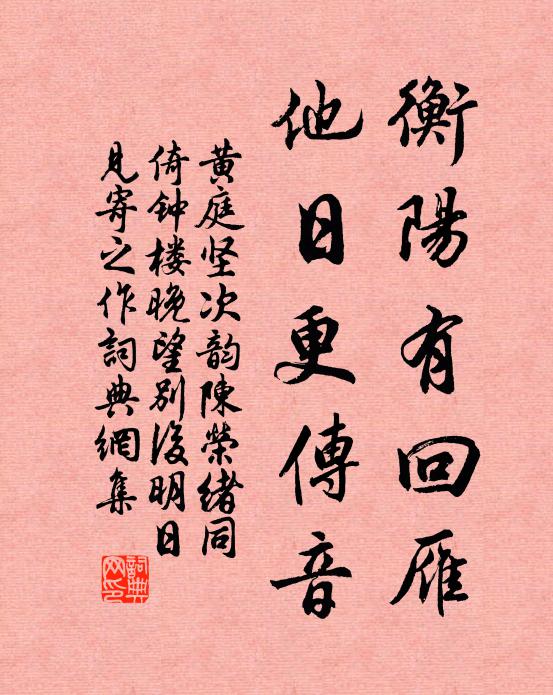 衡陽有回雁
他日更傳音
黄庭坚次韵陳榮緒同
倚钟楼晚望别後明日
見寄之作詞典網集
詞典网印